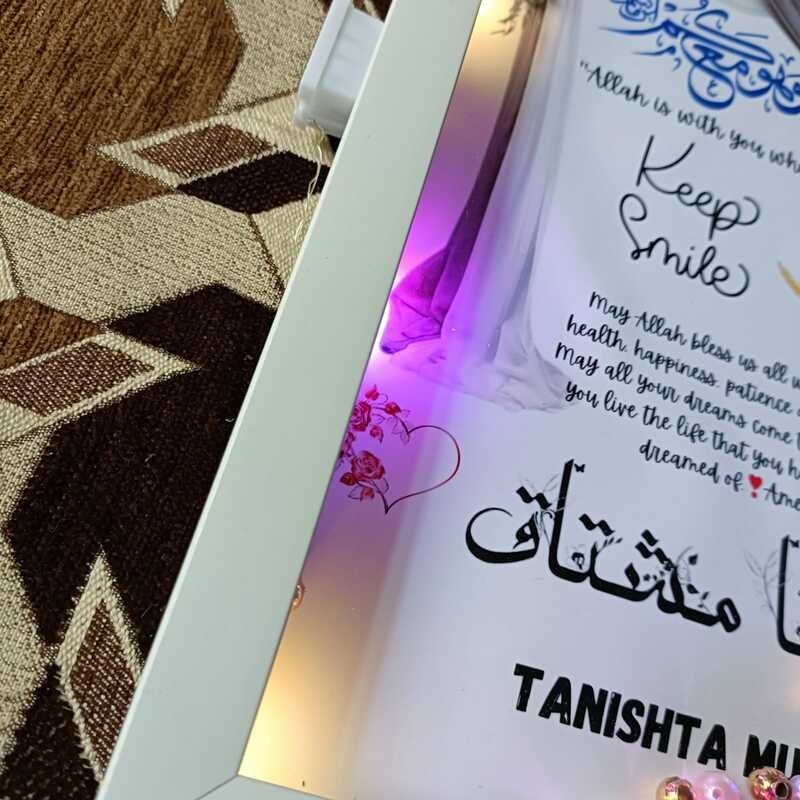 وهو معكم
"Allah is with you
Keep
Smile
May Allah bless us all
health, happiness, patience
May all your dreams come
you live the life that you
dreamed of.❣
منشتاق
TANISHTA